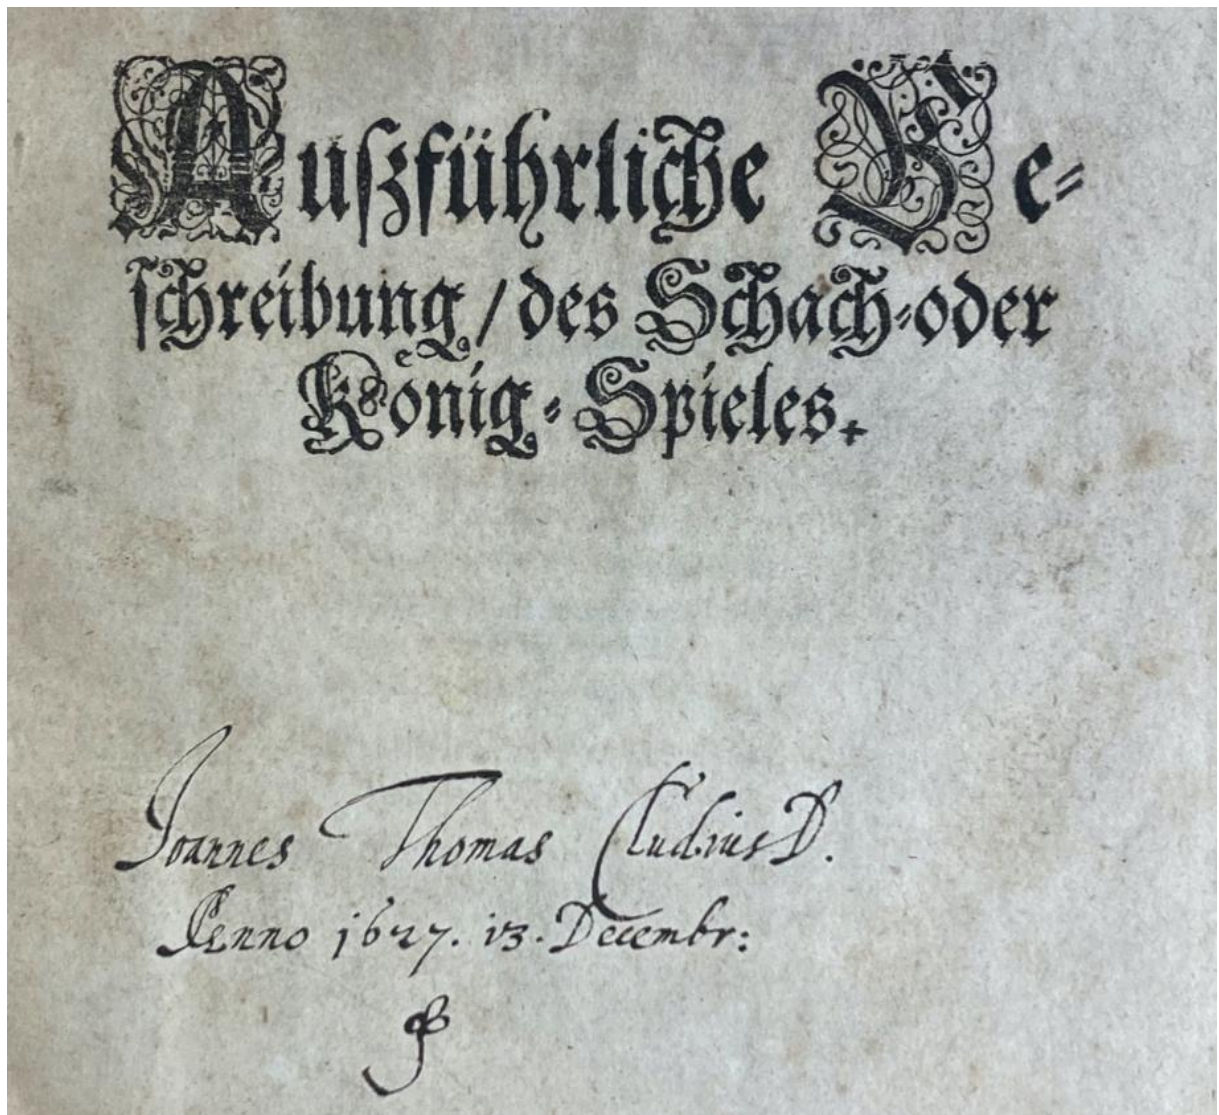 Außführliche Be-
schreibung / des Schach-oder
Koͤnig-Spieles.
Joannes Thomas Cludius D.
Anno 1627. 13. Decembr: